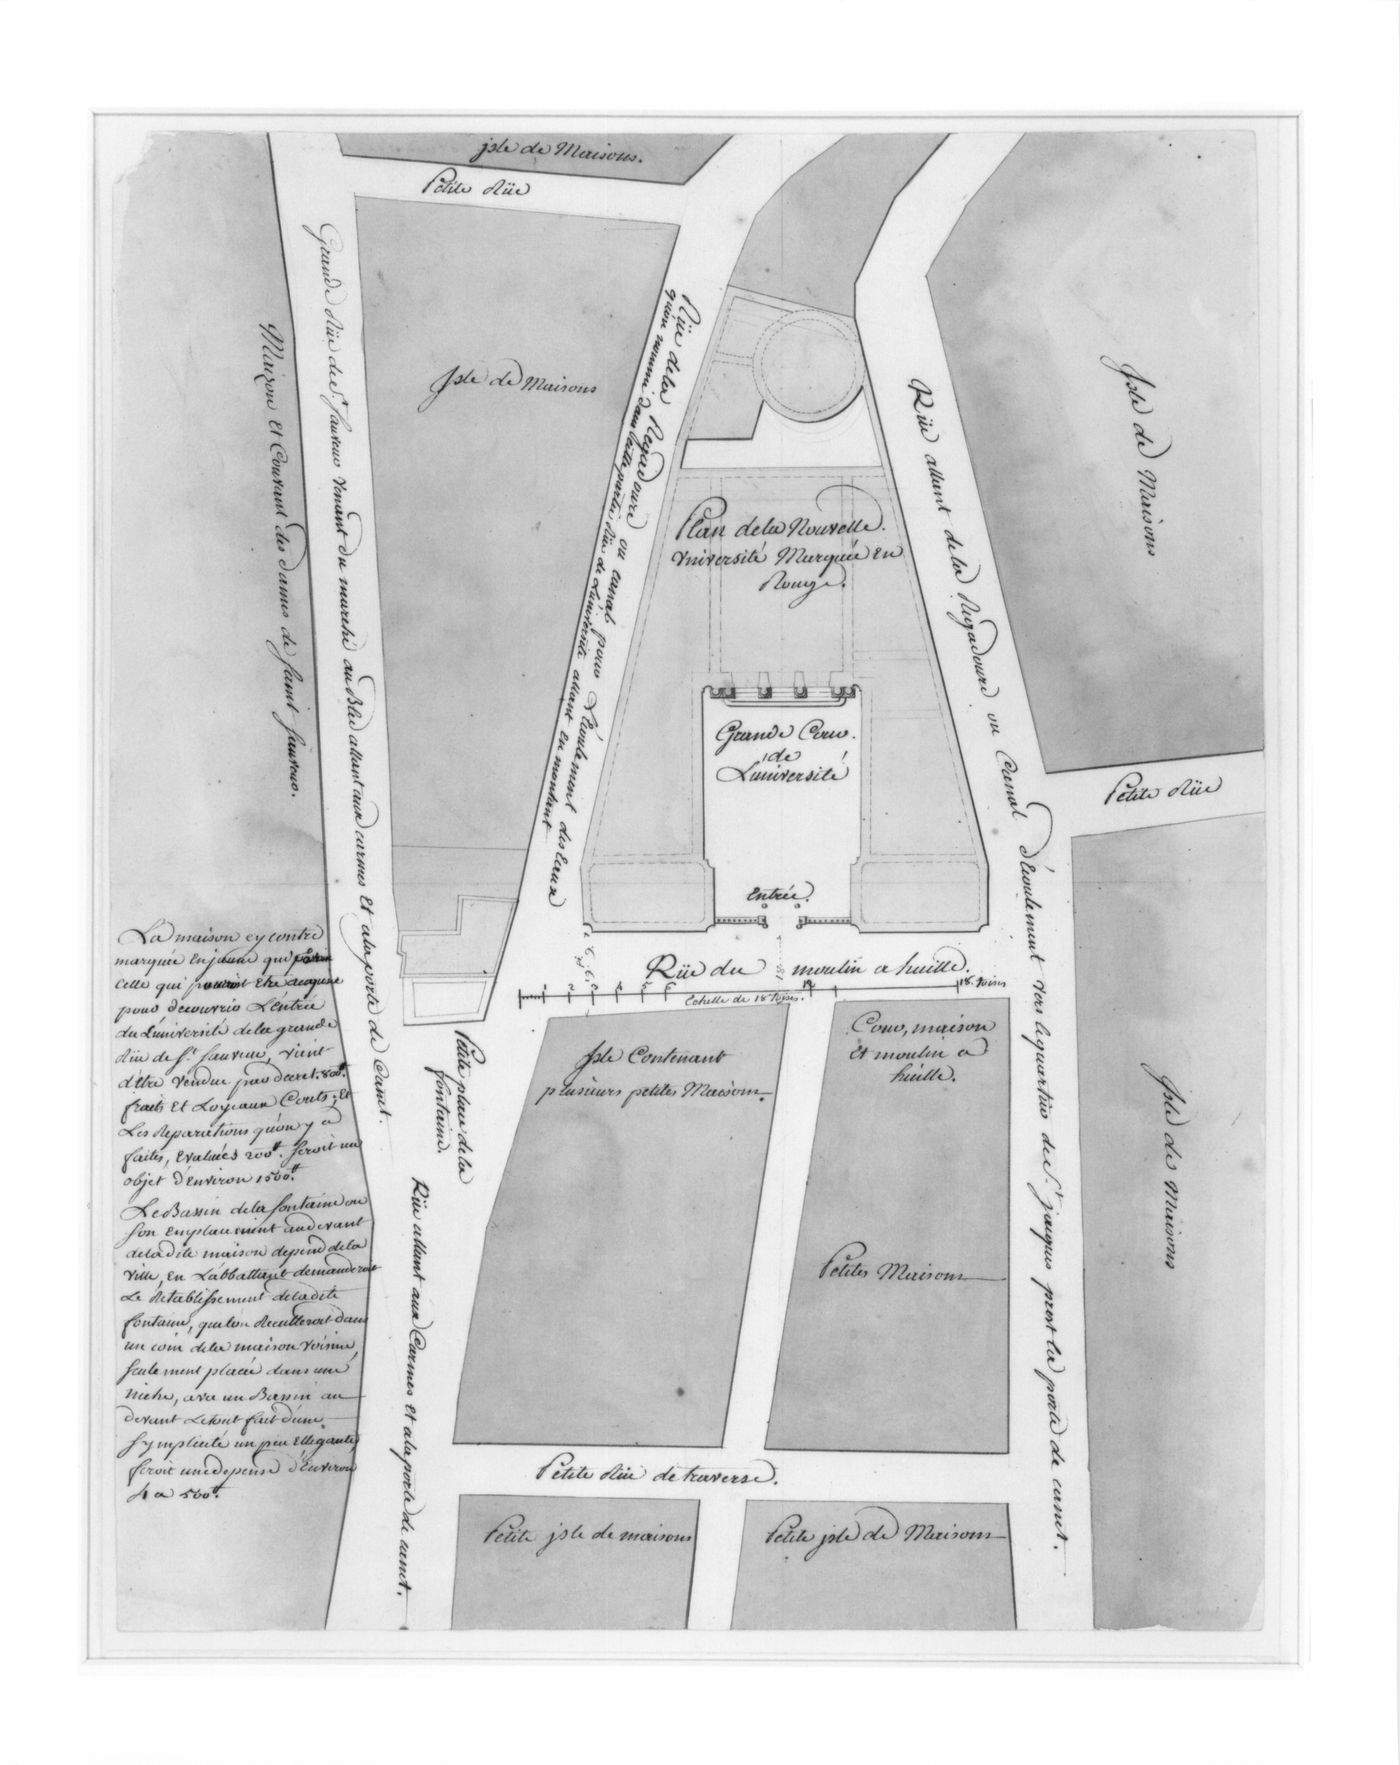 jsle de Maisons.
Petite Rüe
Grande Rüe de St. Sauveur venant du marché au Bled allant aux carmes Et ala porte de Canet.
Maison Et Couvant des dames de saint sauveur.
Jsle de Maisons
Rüe de la Regadoure ou canal pour L'Ecoulement des Eaux
quon nomme dans cette partie Rüe de L'université allant en montant
Rüe allant de la Regadoure ou Canal d'Ecoulement vers le quartier de St. jacques prest la porte de canet.
Jsle de Maisons
Plan de la Nouvelle
Université Marquée En
Rouge.
Grande Cour
de
L'université
Petite Rüe
Entrée.
Rüe du moulin a huille.
1 2 3 4 5 6 12 18. toises
Echelle de 18 toises.
La maison cy contre
marquée En jaune qui
celle qui pouroit etre acquise
pour decouvrir L'Entrée
du L'université de la grande
Rüe de St. sauveur, vient
d'être vendue par decret. 800tt.
frais Et Loyeaux Couts; Et
Les Reparations qu'on y a
faites, Evalués 200tt. seroit un
objet d'Environ 1500tt.
Le Bassin de la fontaine ou
son Emplacement audevant
de la dite maison depend de la
ville, En L'abbattant demanderoit
Le Retablissement de la dite
fontaine, que l'on Reculleroit dans
un coin de la maison voisine,
seulement placée dans une
niche, avec un Bassin au
devant Le tout fait d'une
symplicité un peu Ellegante,
seroit une depense d'Environ
4 a 500tt.
Petite place de la
fontaine.
Jsle Contenant
plusieurs petites Maisons.
Cour, maison
Et moulin a
huille.
Rüe allant aux Carmes Et ala porte de canet.
Petites Maisons
Jsle de Maisons
Petite Rüe de traverse.
Petite jsle de maisons
Petite jsle de Maisons